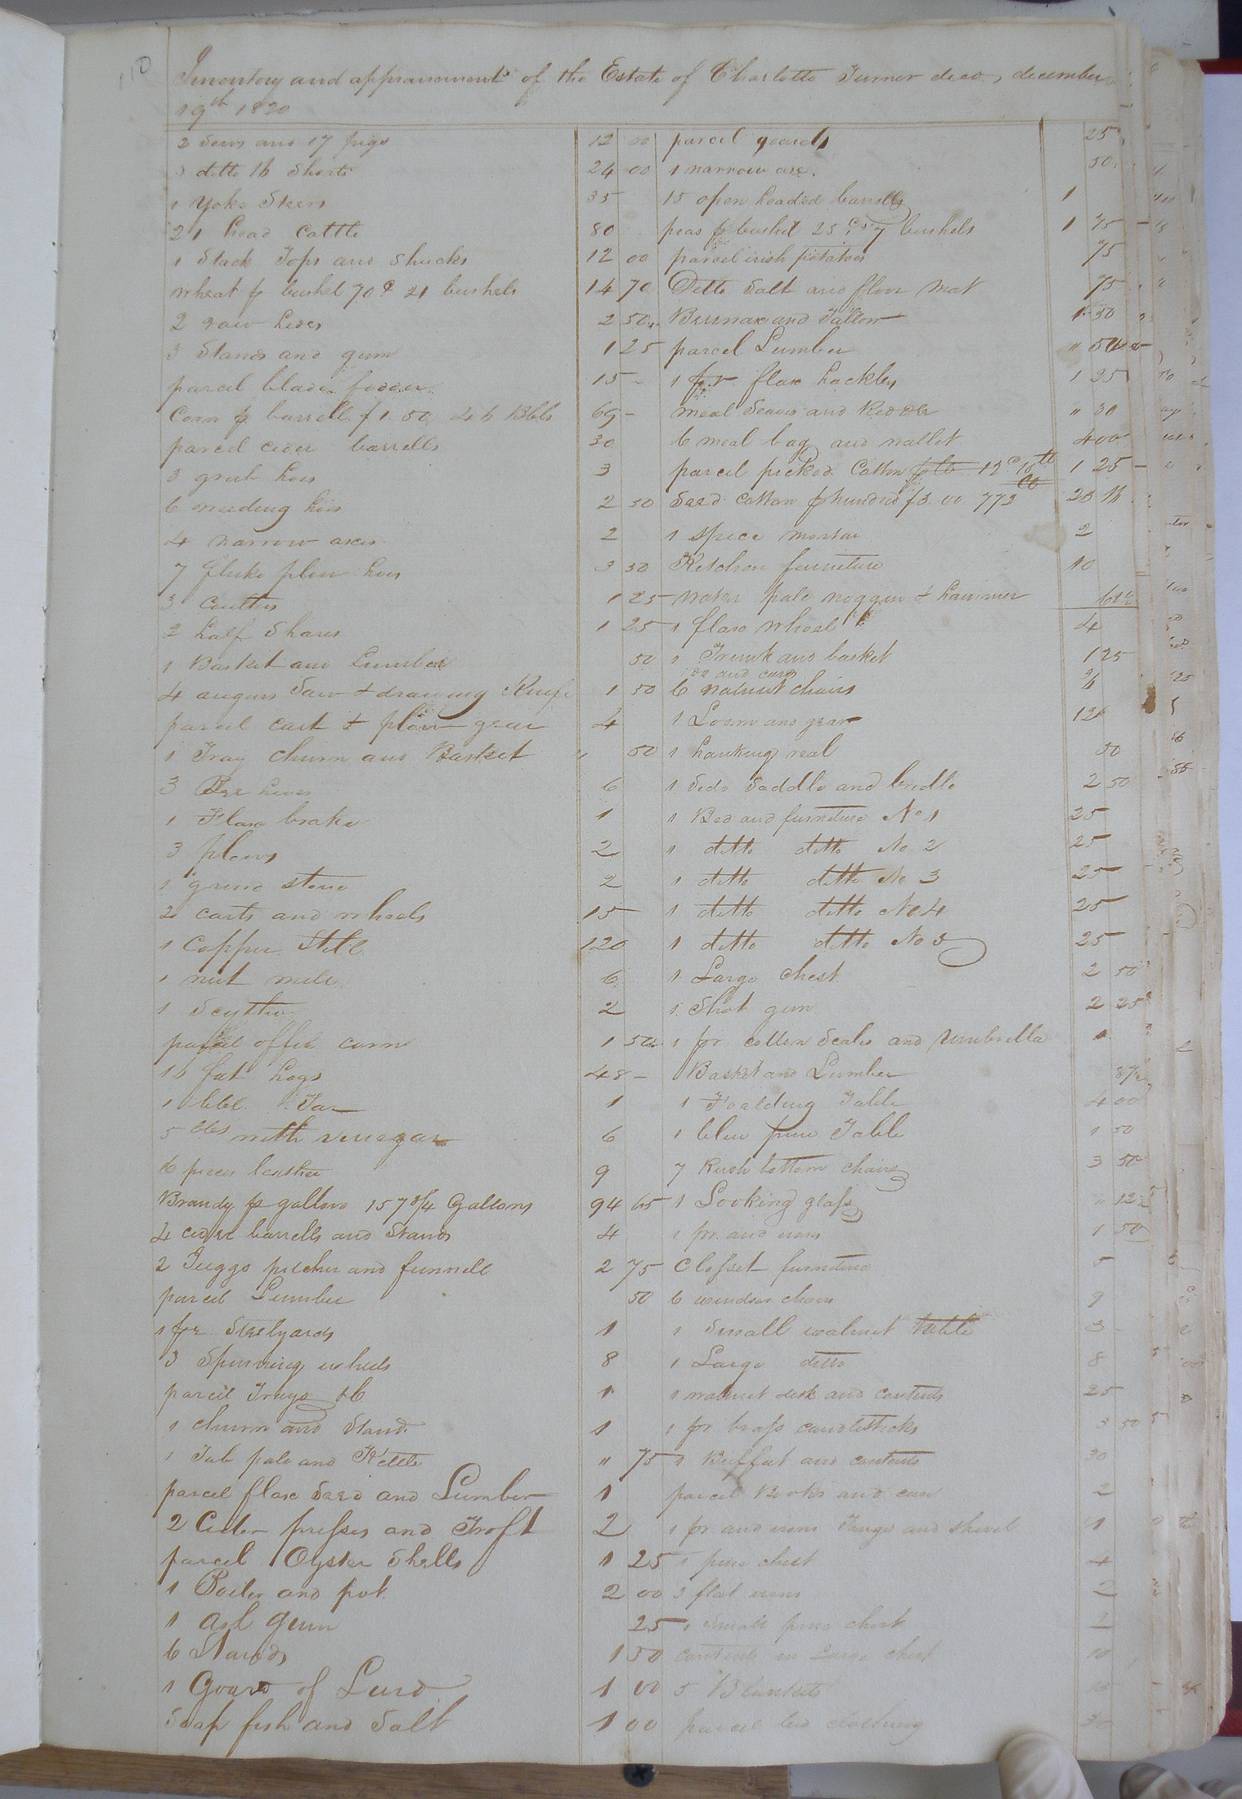 110
Inventory and appraisement of the Estate of Charlotte Turner decd, december
19th 1820
2 Sows and 17 pigs 12 00
3 ditto 16 Shoats 24 00
1 Yoke Steers 35
21 head Cattle 80
1 Stack Tops and Shucks 12 00
wheat p bushel 70 c 21 bushels 14 70
2 raw hides 2 50
3 Stands and gum 1 25
parcel blade fodder 15 -
Corn p barrell $1.50 46 Bbls 69 -
parcel cider barrells 30
3 grub hoes 3
6 weeding hoes 2 50
4 narrow axes 2
7 fluke plow hoes 3 50
3 Coulters 1 25
2 half Shares 1 25
1 Basket and Lumber 50
4 augurs Saw & drawing Knife 1 50
parcel cart & plow gear 4
1 Tray churn and Basket " 50
3 Bee hives 6
1 Flax brake 1
3 plows 2
1 grind stone 2
2 carts and wheels 15
1 Copper Still 120
1 nut mill 6
1 Scythe 2
parcel offil corn 1 50
16 fat hogs 48 -
1 bbl Tar 1
5 bbls with vinegar 6
6 pieces leather 9
Brandy p gallon 157 3/4 Gallons 94 65
4 cider barrells and Stands 4
2 Juggs pitcher and funnell 2 75
parcel Lumber 50
1 pr Steelyards 1
3 Spinning wheels 8
parcel Trays &c 1
1 churn and Stand 1
1 Tub pale and Kettle " 75
parcel flax Seed and Lumber 1
2 Cider presses and Troft 2
parcel Oyster Shells 1 25
1 Boiler and pot 2 00
1 ash Gum 25
6 Stands 1 50
1 Goard of Lard 1 00
Soap fish and Salt 1 00
parcel goards 25
1 narrow axe 50
15 open headed barrells 1
peas p bushel 25 cs 7 bushels 1 75
parcel irish potatoes 75
Ditto Salt and flour mat 75
Beeswax and Tallow 1 50
parcel Lumber " 50
1 pr flax hackles 1 25
meal Seaves and Riddle " 30
6 meal bags and wallet 4 00
parcel picked Cotton p lb 12 c 10 lb 1 25
Seed Cotton p hundred $3.00 772 23 16
1 spice mortar 2
Kitchen furniture 10
water pale noggin & hammer
1 flax wheel 4
1 Trunk and basket 1 25
6 walnut chairs
1 Loom and gear 12
1 hanking reel 50
1 Side Saddle and bridle 2 50
1 Bed and furniture No 1 25
1 ditto ditto No 2 25
1 ditto ditto No 3 25
1 ditto ditto No 4 25
1 ditto ditto No 5 25
1 Large chest 2 50
1 Shot gun 2 25
1 pr cotton Scales and Umbrella 1
Basket and Lumber 37½
1 Foalding Table 4 00
1 blue pine Table 1 50
7 Rush bottom chairs 3 50
1 Looking glass " 12½
1 pr and irons 1 50
Closset furniture 5
6 windsor chairs 9
1 Small walnut table 3
1 Large ditto 8
1 walnut desk and contents 25
1 pr brass candlesticks 3 50
1 Buffat and contents 30
parcel Books and case 2
1 pr and irons Tongs and shovel 1
1 pine chest 4
3 flat irons 2
1 Small pine chest
contents in Large chest 10
5 Blankets
parcel bed cloathing 30